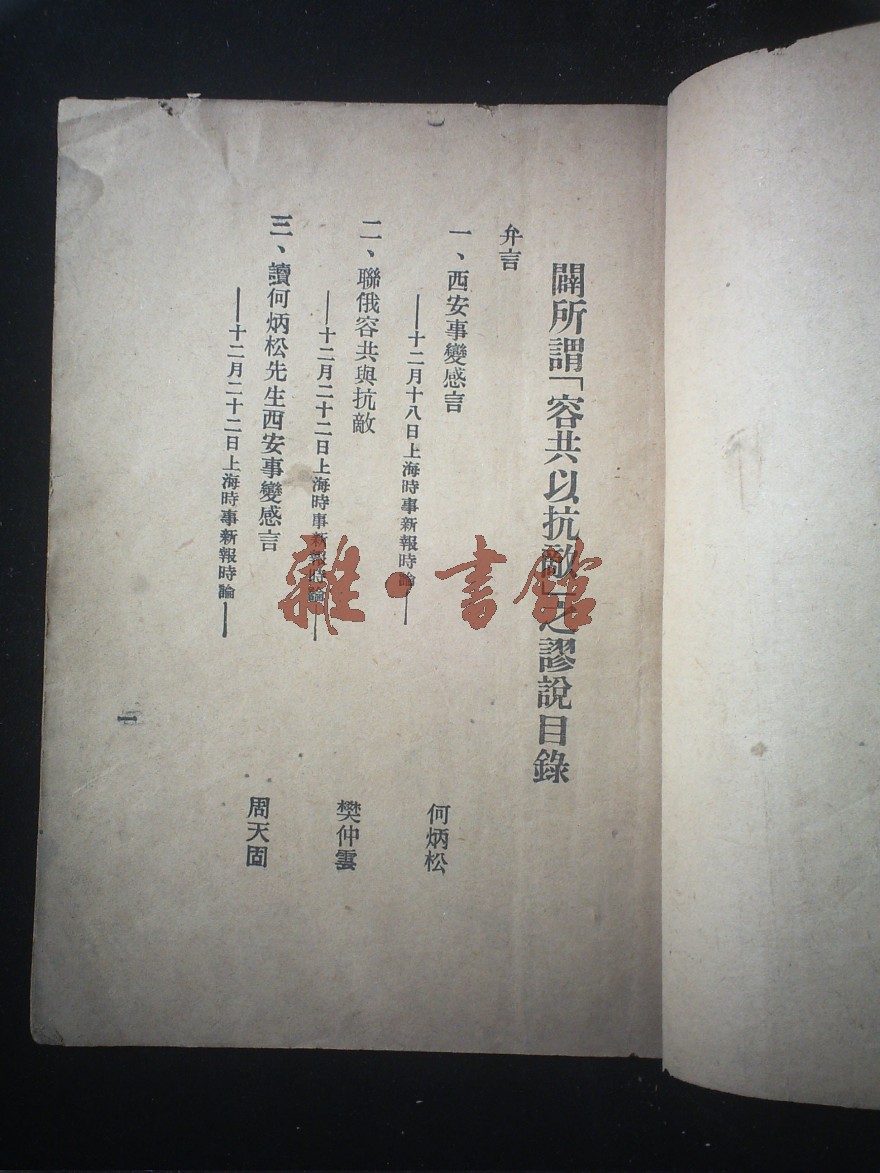 闢所謂「容共以抗敵」之謬說目錄
弁言
一、西安事變感言 何炳松
——十二月十八日上海時事新報時論——
二、聯俄容共與抗敵 樊仲雲
——十二月二十二日上海時事新報時論——
三、讀何炳松先生西安事變感言 周天固
——十二月二十二日上海時事新報時論——
一
雜·書館